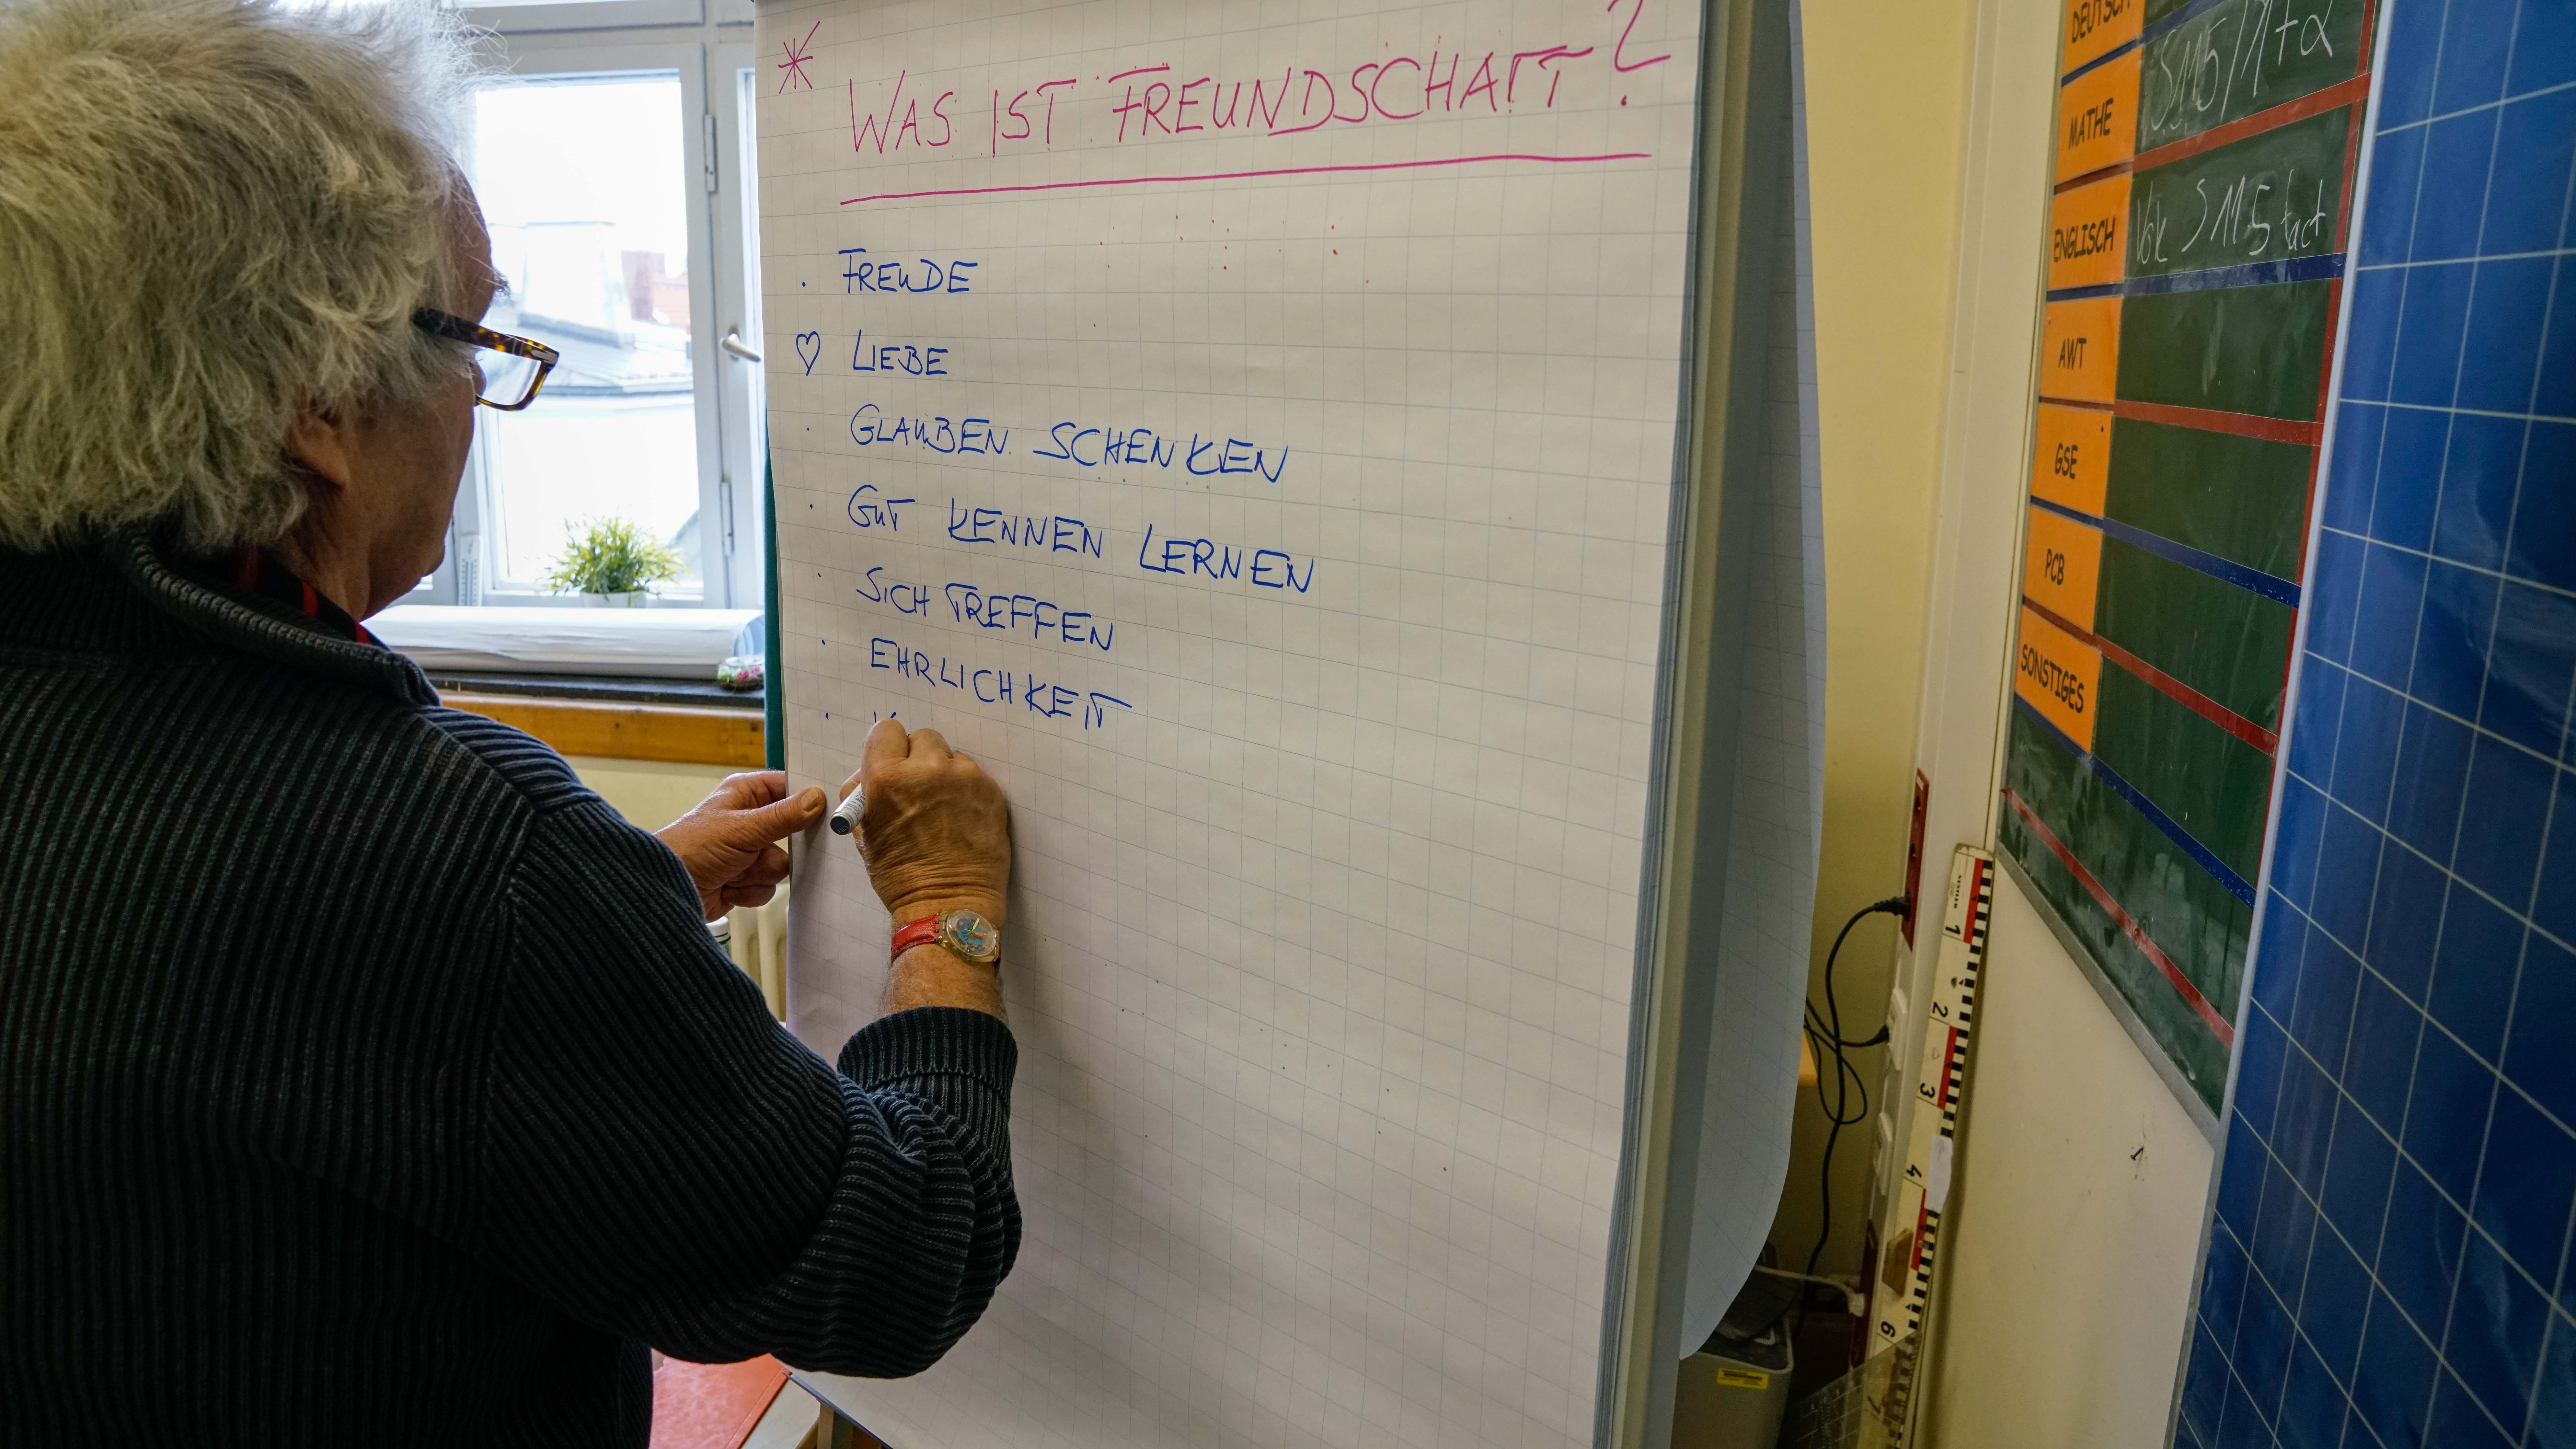 * WAS IST FREUNDSCHAFT?
· FREUDE
♡ LIEBE
· GLAUBEN SCHENKEN
· GUT KENNEN LERNEN
· SICH TREFFEN
· EHRLICHKEIT
·
DEUTSCH
MATHE S115/1+2
ENGLISCH Vok S115
AWT
GSE
PCB
SONSTIGES
1
2
3
4
6